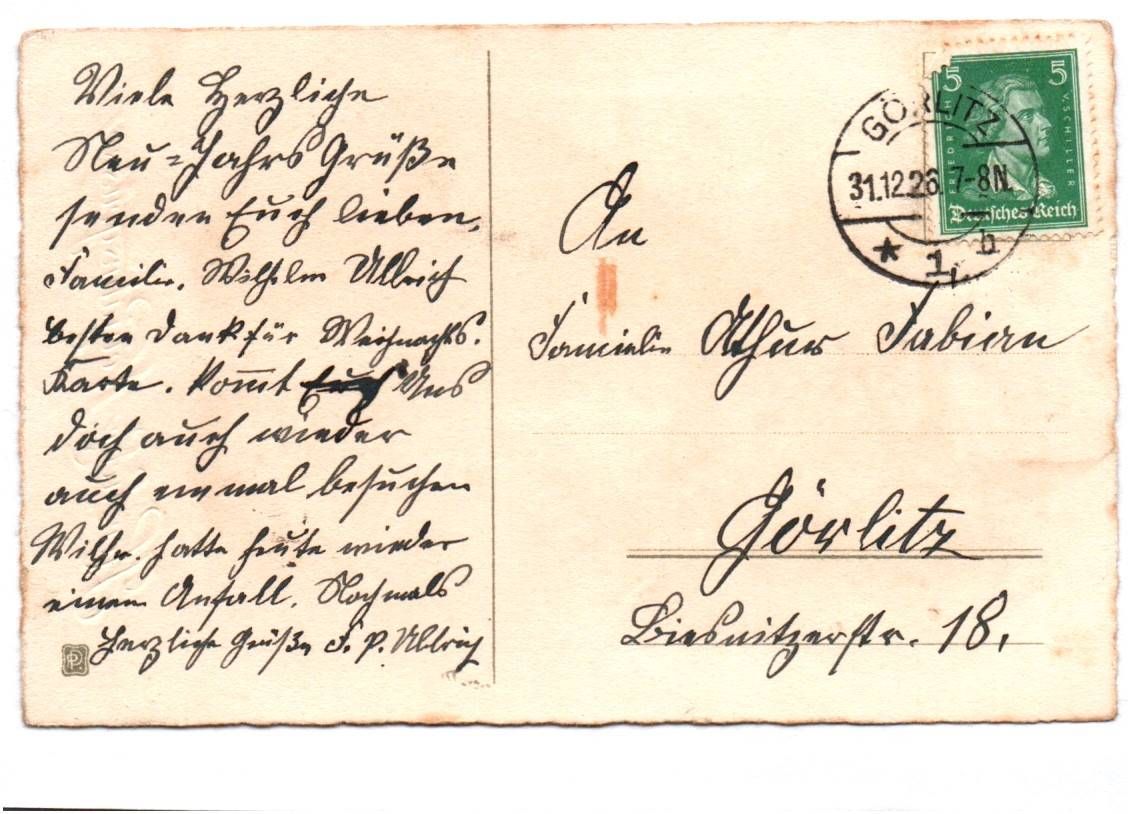 Viele Herzliche
Neu=Jahrs Grüße
senden Euch lieben,
Familie. Wilhelm Ullrich
besten Dank für Weihnachts.
Karte. Kommt Euch Uns
doch auch wieder
auch einmal besuchen
Wilh. hatte heute wieder
einen Anfall. Nochmals
Herzliche Grüße F. P. Ullrich
PP.
5 5
FRIEDRICH V. SCHILLER
Deutsches Reich
GÖRLITZ
31.12.26. 7-8N.
* 1 b
An
Familie Athur Fabian
Görlitz
Biesnitzerstr. 18.